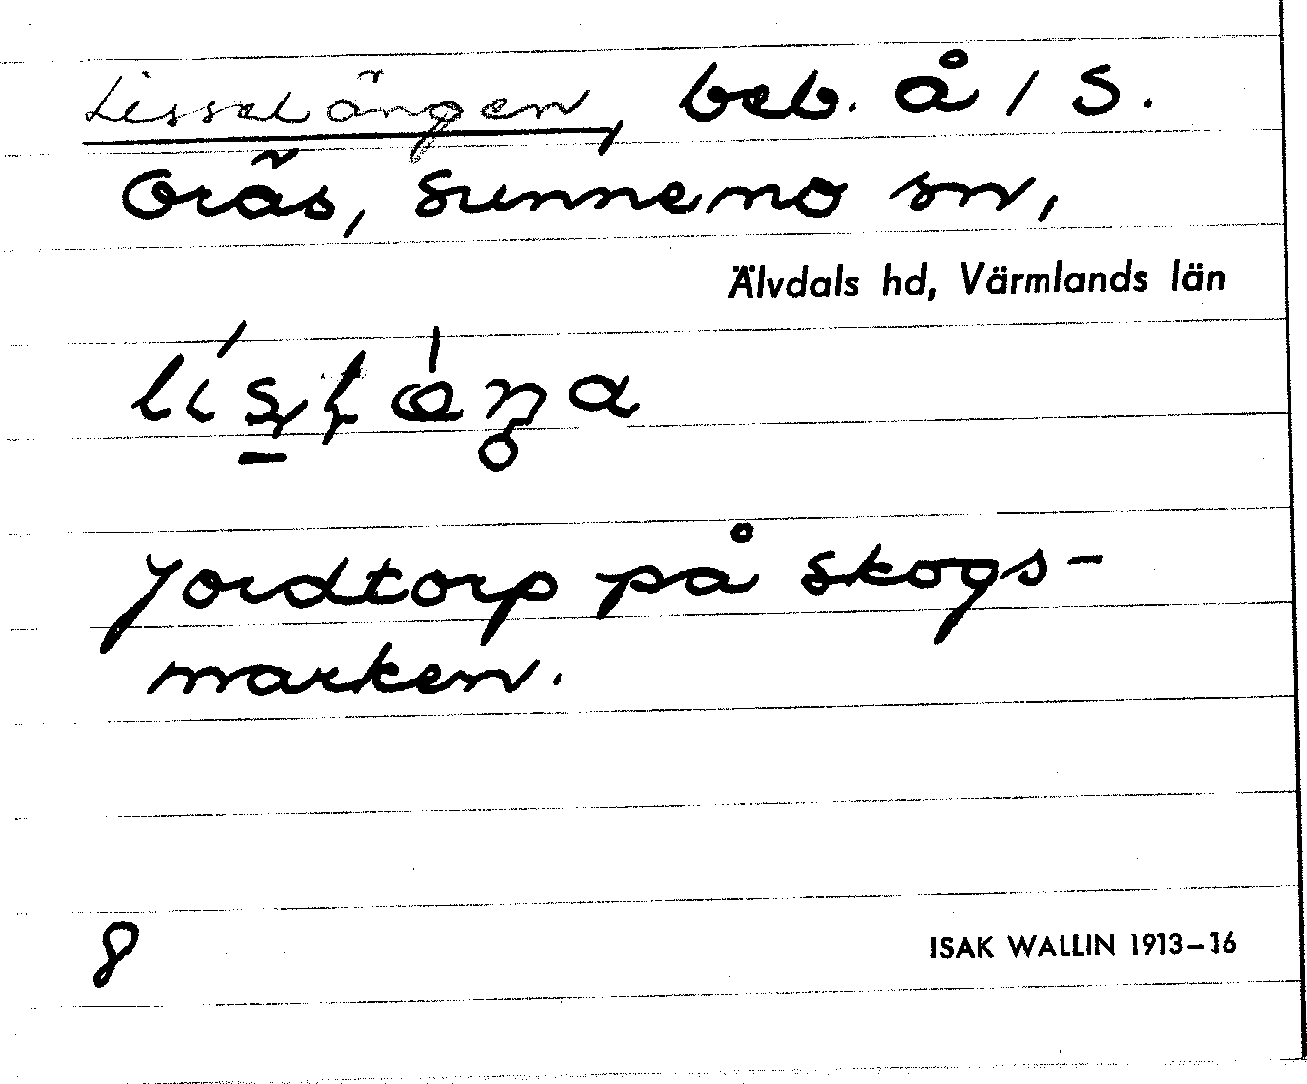 Lisselängen, beb. å / S.
Gräs, Sunnemo sn,
Älvdals hd, Värmlands län
Jordtorp på skogs-
marken.
8
ISAK WALLIN 1913–16